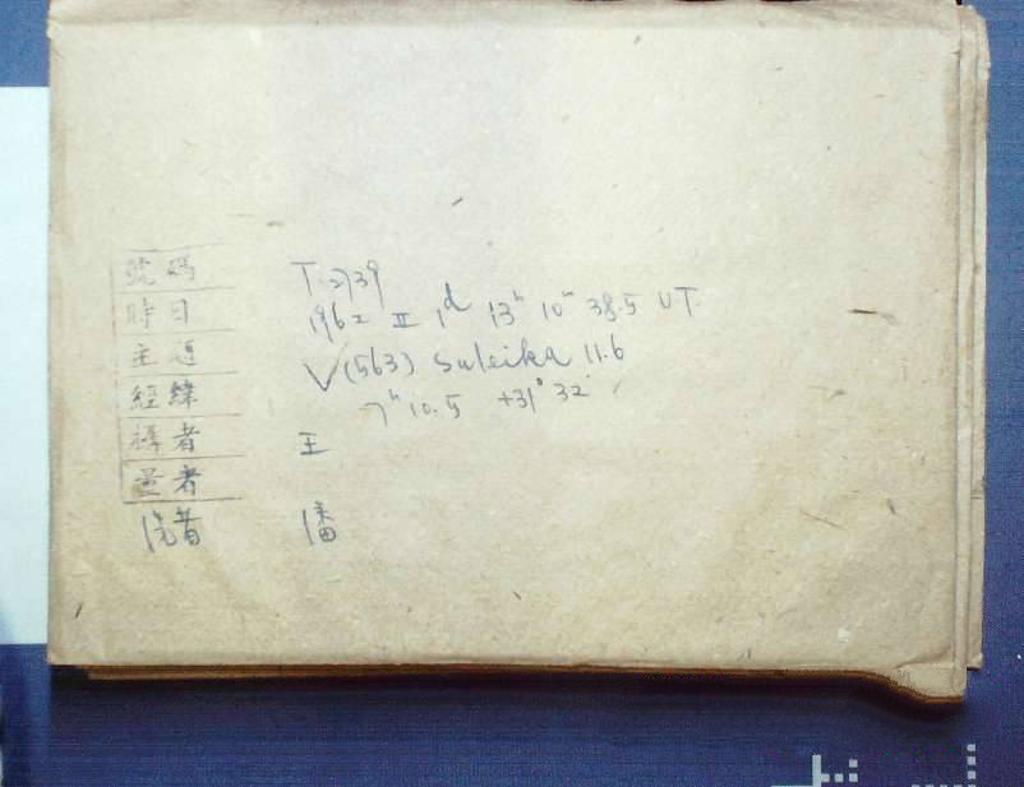 號碼 T.2739
時日 1962 II 1ᵈ 13ʰ 10ᵐ 38.5 UT.
主題 √(563) Suleika 11.6
經緯 7ʰ 10.5 +31° 32'
攝者 王
量者
洗者 潘